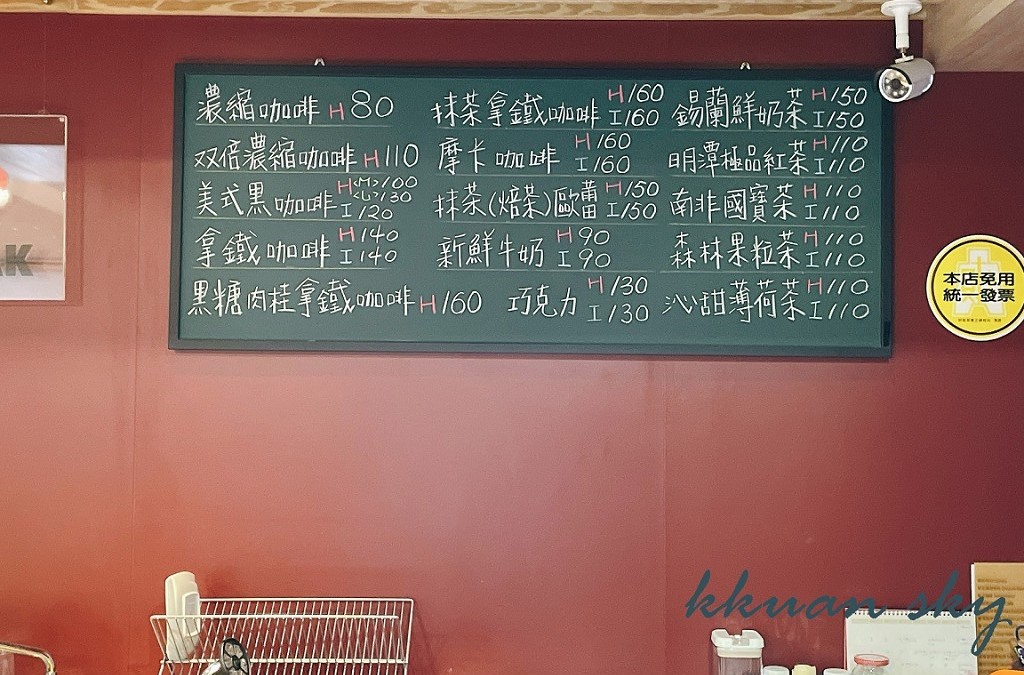 濃縮咖啡 H 80
双倍濃縮咖啡 H 110
美式黑咖啡 H <M>100 <L>130 I 120
拿鐵咖啡 H 140 I 140
黑糖肉桂拿鐵咖啡 H 160
抹茶拿鐵咖啡 H 160 I 160
摩卡咖啡 H 160 I 160
抹茶(焙茶)歐蕾 H 150 I 150
新鮮牛奶 H 90 I 90
巧克力 H 130 I 130
錫蘭鮮奶茶 H 150 I 150
明潭極品紅茶 H 110 I 110
南非國寶茶 H 110 I 110
森林果粒茶 H 110 I 110
沁甜薄荷茶 H 110 I 110
本店免用
統一發票
kkuan sky